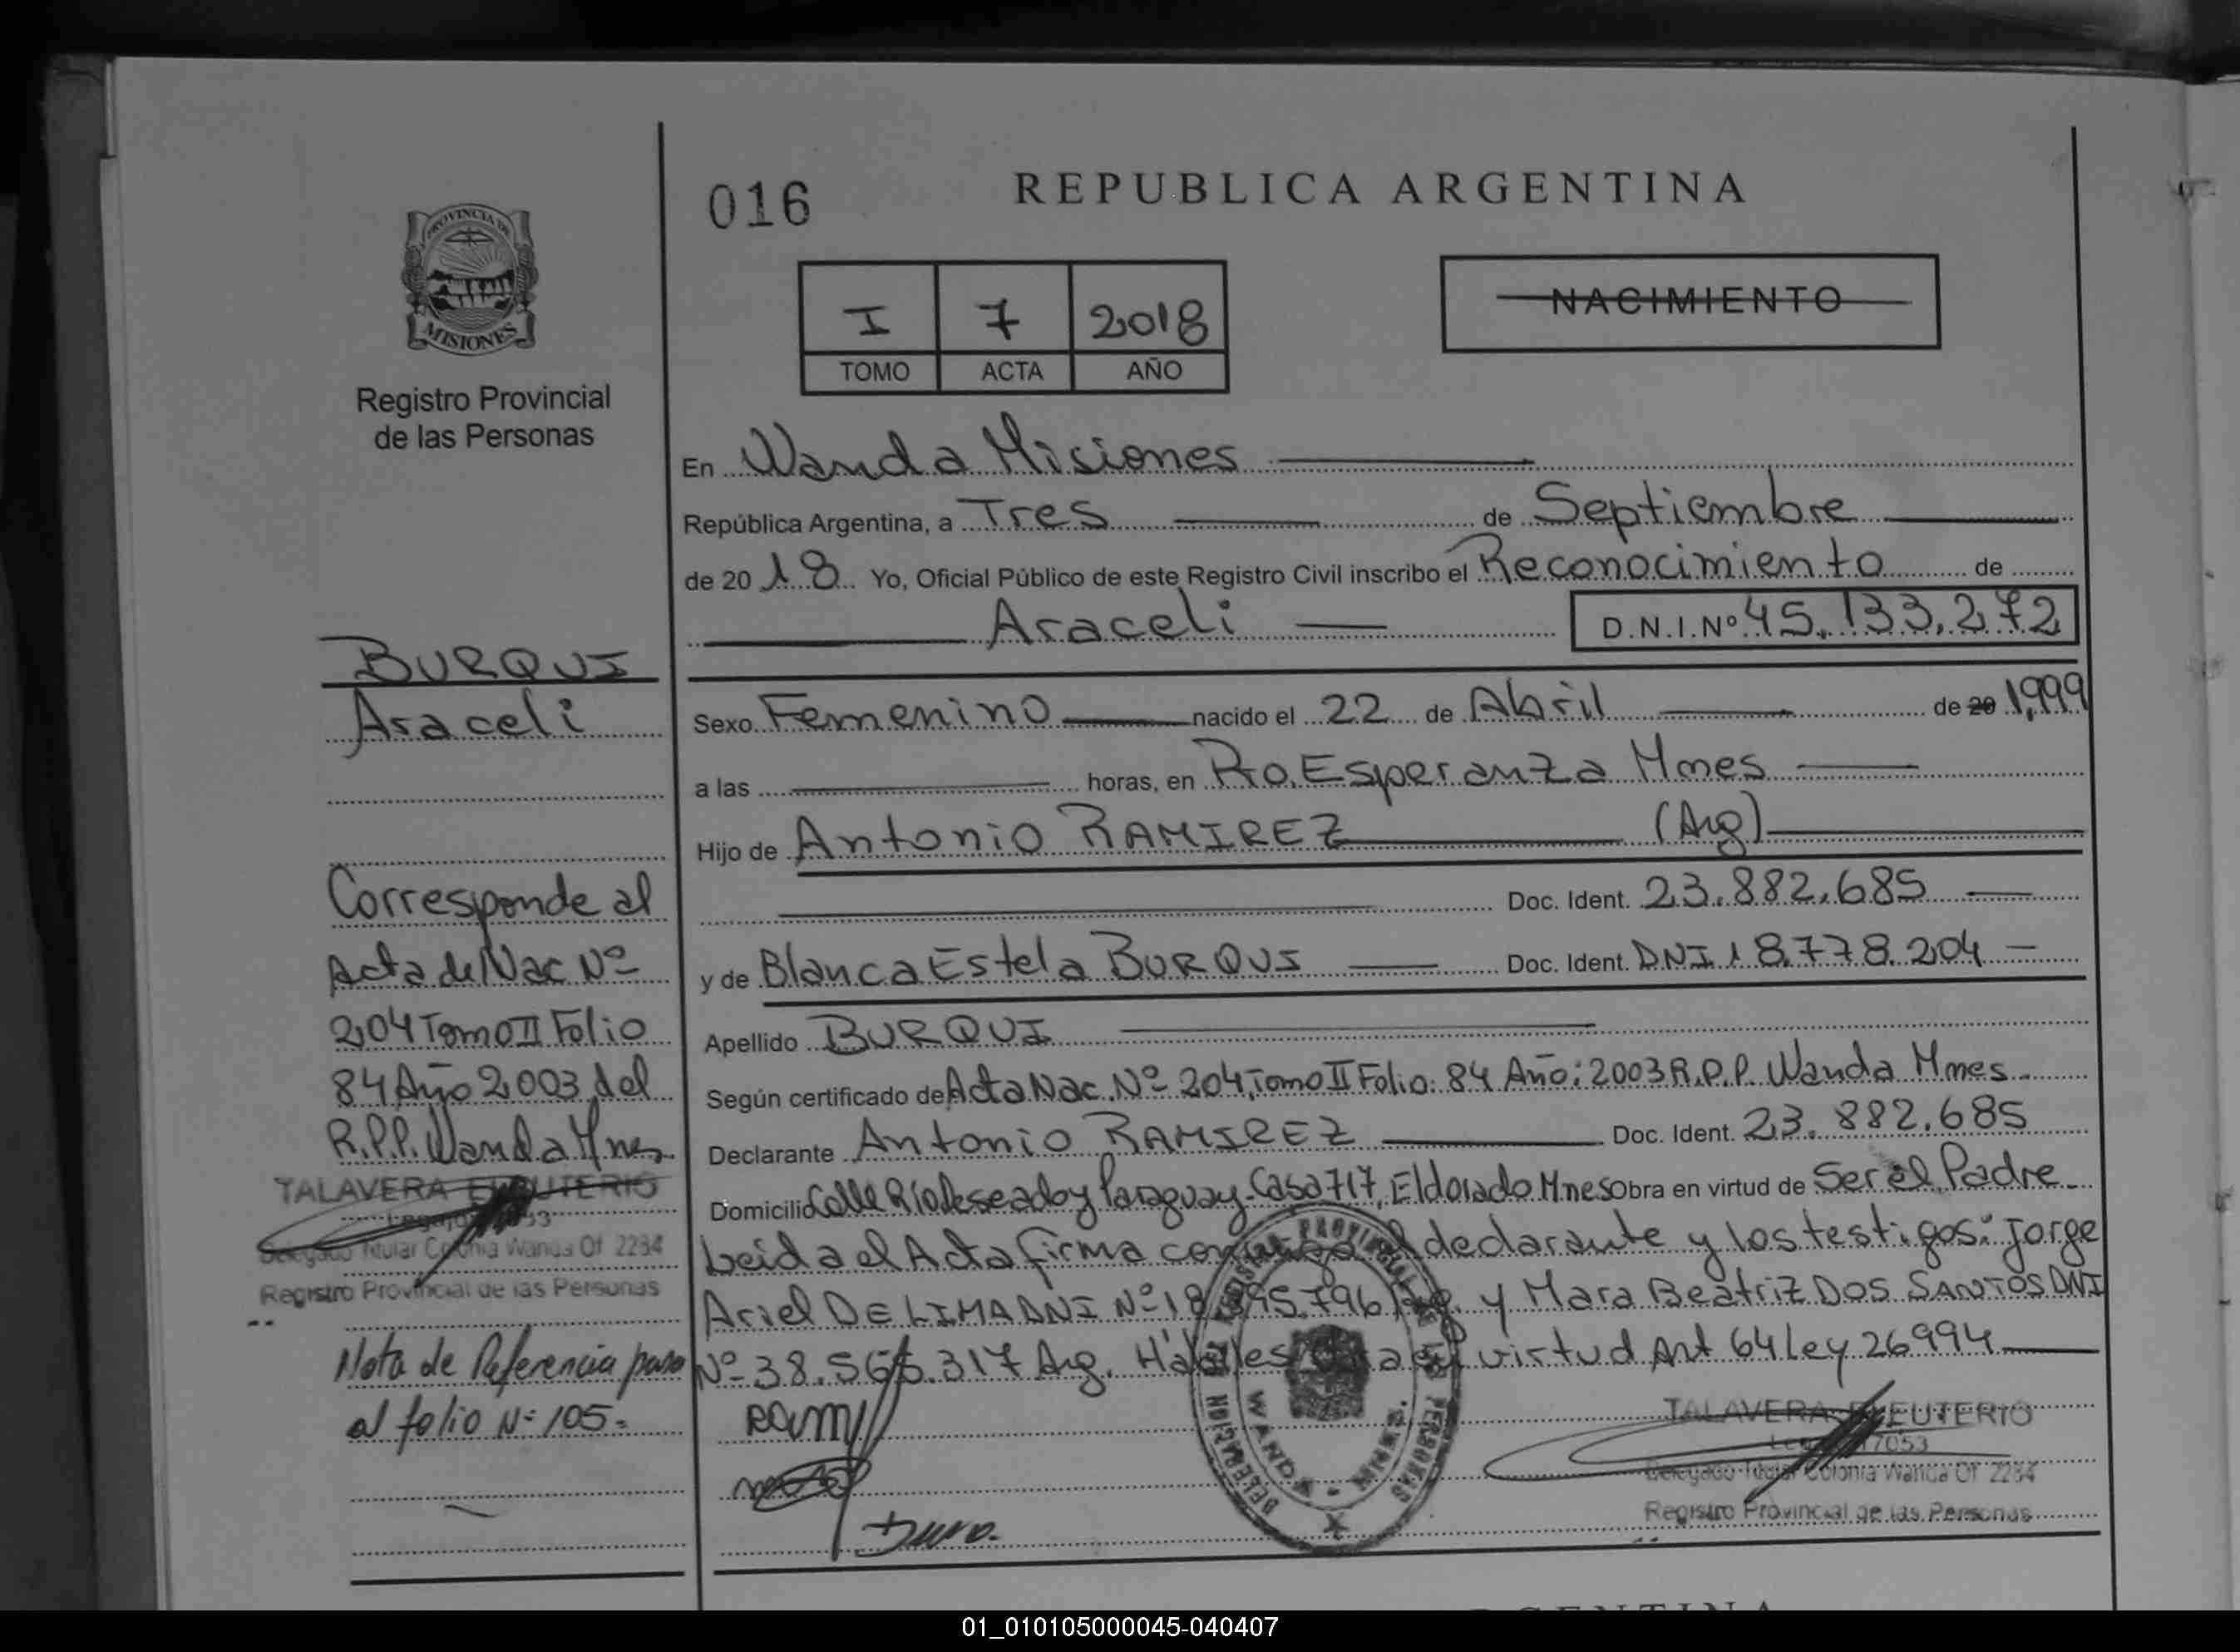 016
REPUBLICA ARGENTINA
PROVINCIA DE
MISIONES
Registro Provincial
de las Personas
I 7 2018
TOMO ACTA AÑO
NACIMIENTO
En Wanda Misiones
República Argentina, a Tres de Septiembre
de 2018 Yo, Oficial Público de este Registro Civil inscribo el Reconocimiento de
Araceli D.N.I.Nº 45.133.272
Sexo Femenino nacido el 22 de Abril de 20 1,999
a las horas, en Pto. Esperanza Mnes
Hijo de Antonio RAMIREZ (Arg)
Doc. Ident. 23.882.685
y de Blanca Estela BURQUI Doc. Ident. DNI 18.778.204
Apellido BURQUI
Según certificado de Acta Nac. Nº 204, Tomo II Folio: 84 Año: 2003 R.P.P. Wanda Mnes
Declarante Antonio RAMIREZ Doc. Ident. 23.882.685
Domicilio Calle Río Deseado y Paraguay - Casa 717, Eldorado Mnes Obra en virtud de Ser el Padre
Leida el Acta firma el declarante y los testigos: Jorge
Ariel DE LIMA DNI Nº 18 Arg. y Mara Beatriz DOS SANTOS DNI
Nº 38.565.317 Arg. Hábiles virtud Art 64 Ley 26994
BURQUI
Araceli
Corresponde al
Acta de Nac Nº
204 Tomo II Folio
84 Año 2003 del
R.P.P. Wanda Mnes
TALAVERA ELEUTERIO
Delegado Titular Colonia Wanda Of 2234
Registro Provincial de las Personas
Nota de Referencia pasa
al folio Nº 105
Ram
DELEGACION REGISTRO PROVINCIAL DE LAS PERSONAS
WANDA - MNES.
TALAVERA ELEUTERIO
Delegado Titular Colonia Wanda Of 2234
Registro Provincial de las Personas
01_010105000045-040407